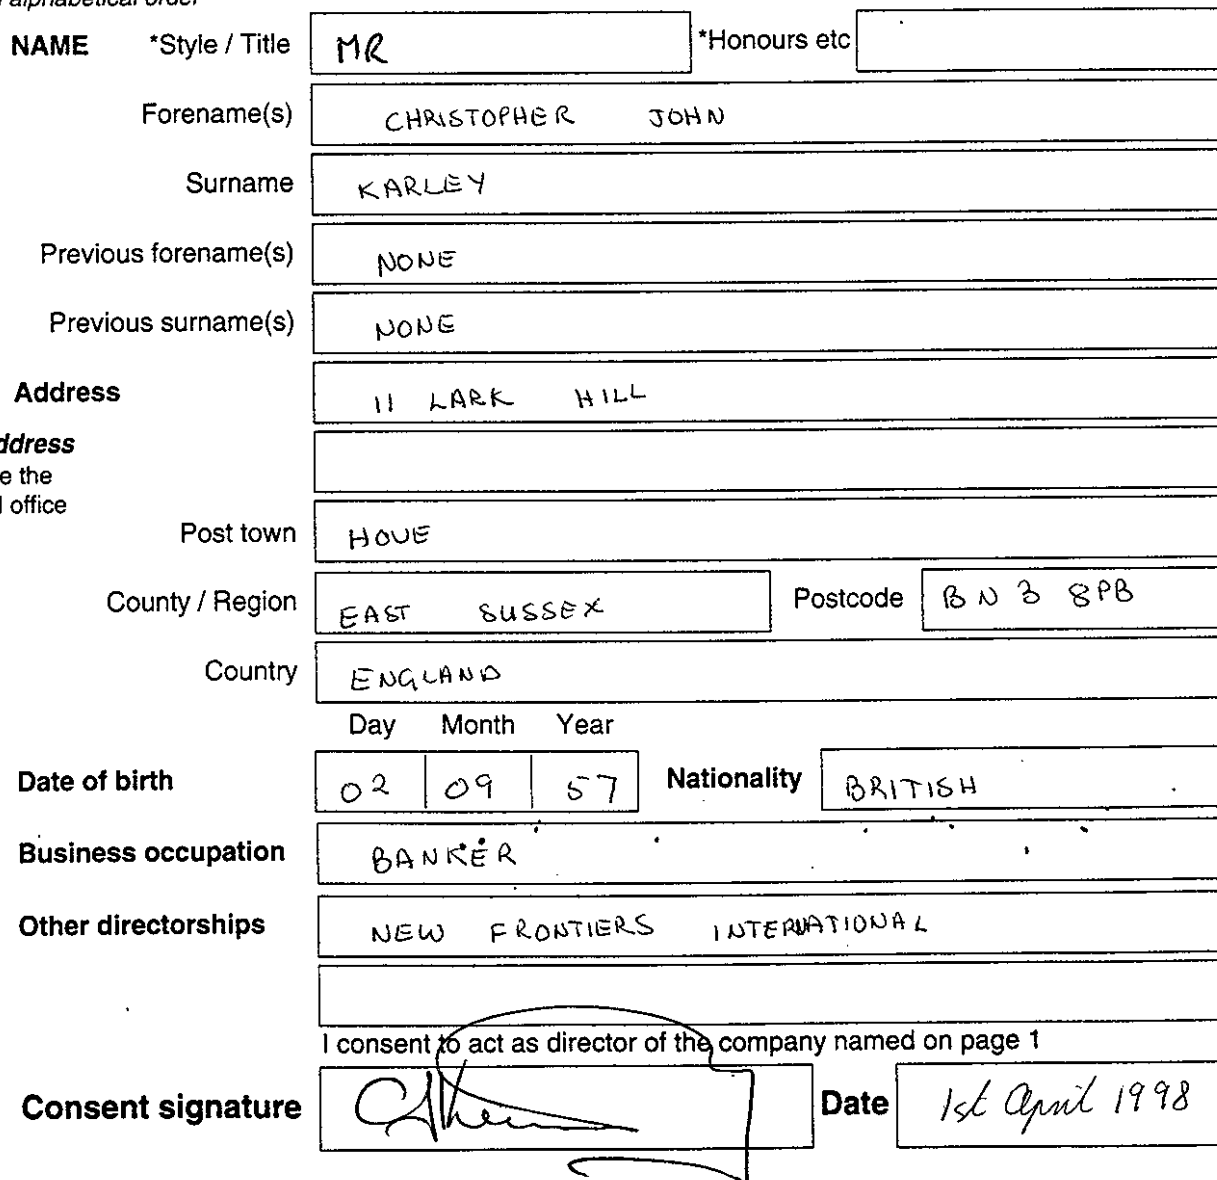 alphabetical order
NAME *Style / Title MR *Honours etc
Forename(s) CHRISTOPHER JOHN
Surname KARLEY
Previous forename(s) NONE
Previous surname(s) NONE
Address 11 LARK HILL
ddress
e the
l office
Post town HOVE
County / Region EAST SUSSEX Postcode BN3 8PB
Country ENGLAND
Day Month Year
Date of birth 02 09 57 Nationality BRITISH
Business occupation BANKER
Other directorships NEW FRONTIERS INTERNATIONAL
I consent to act as director of the company named on page 1
Consent signature Date 1st April 1998